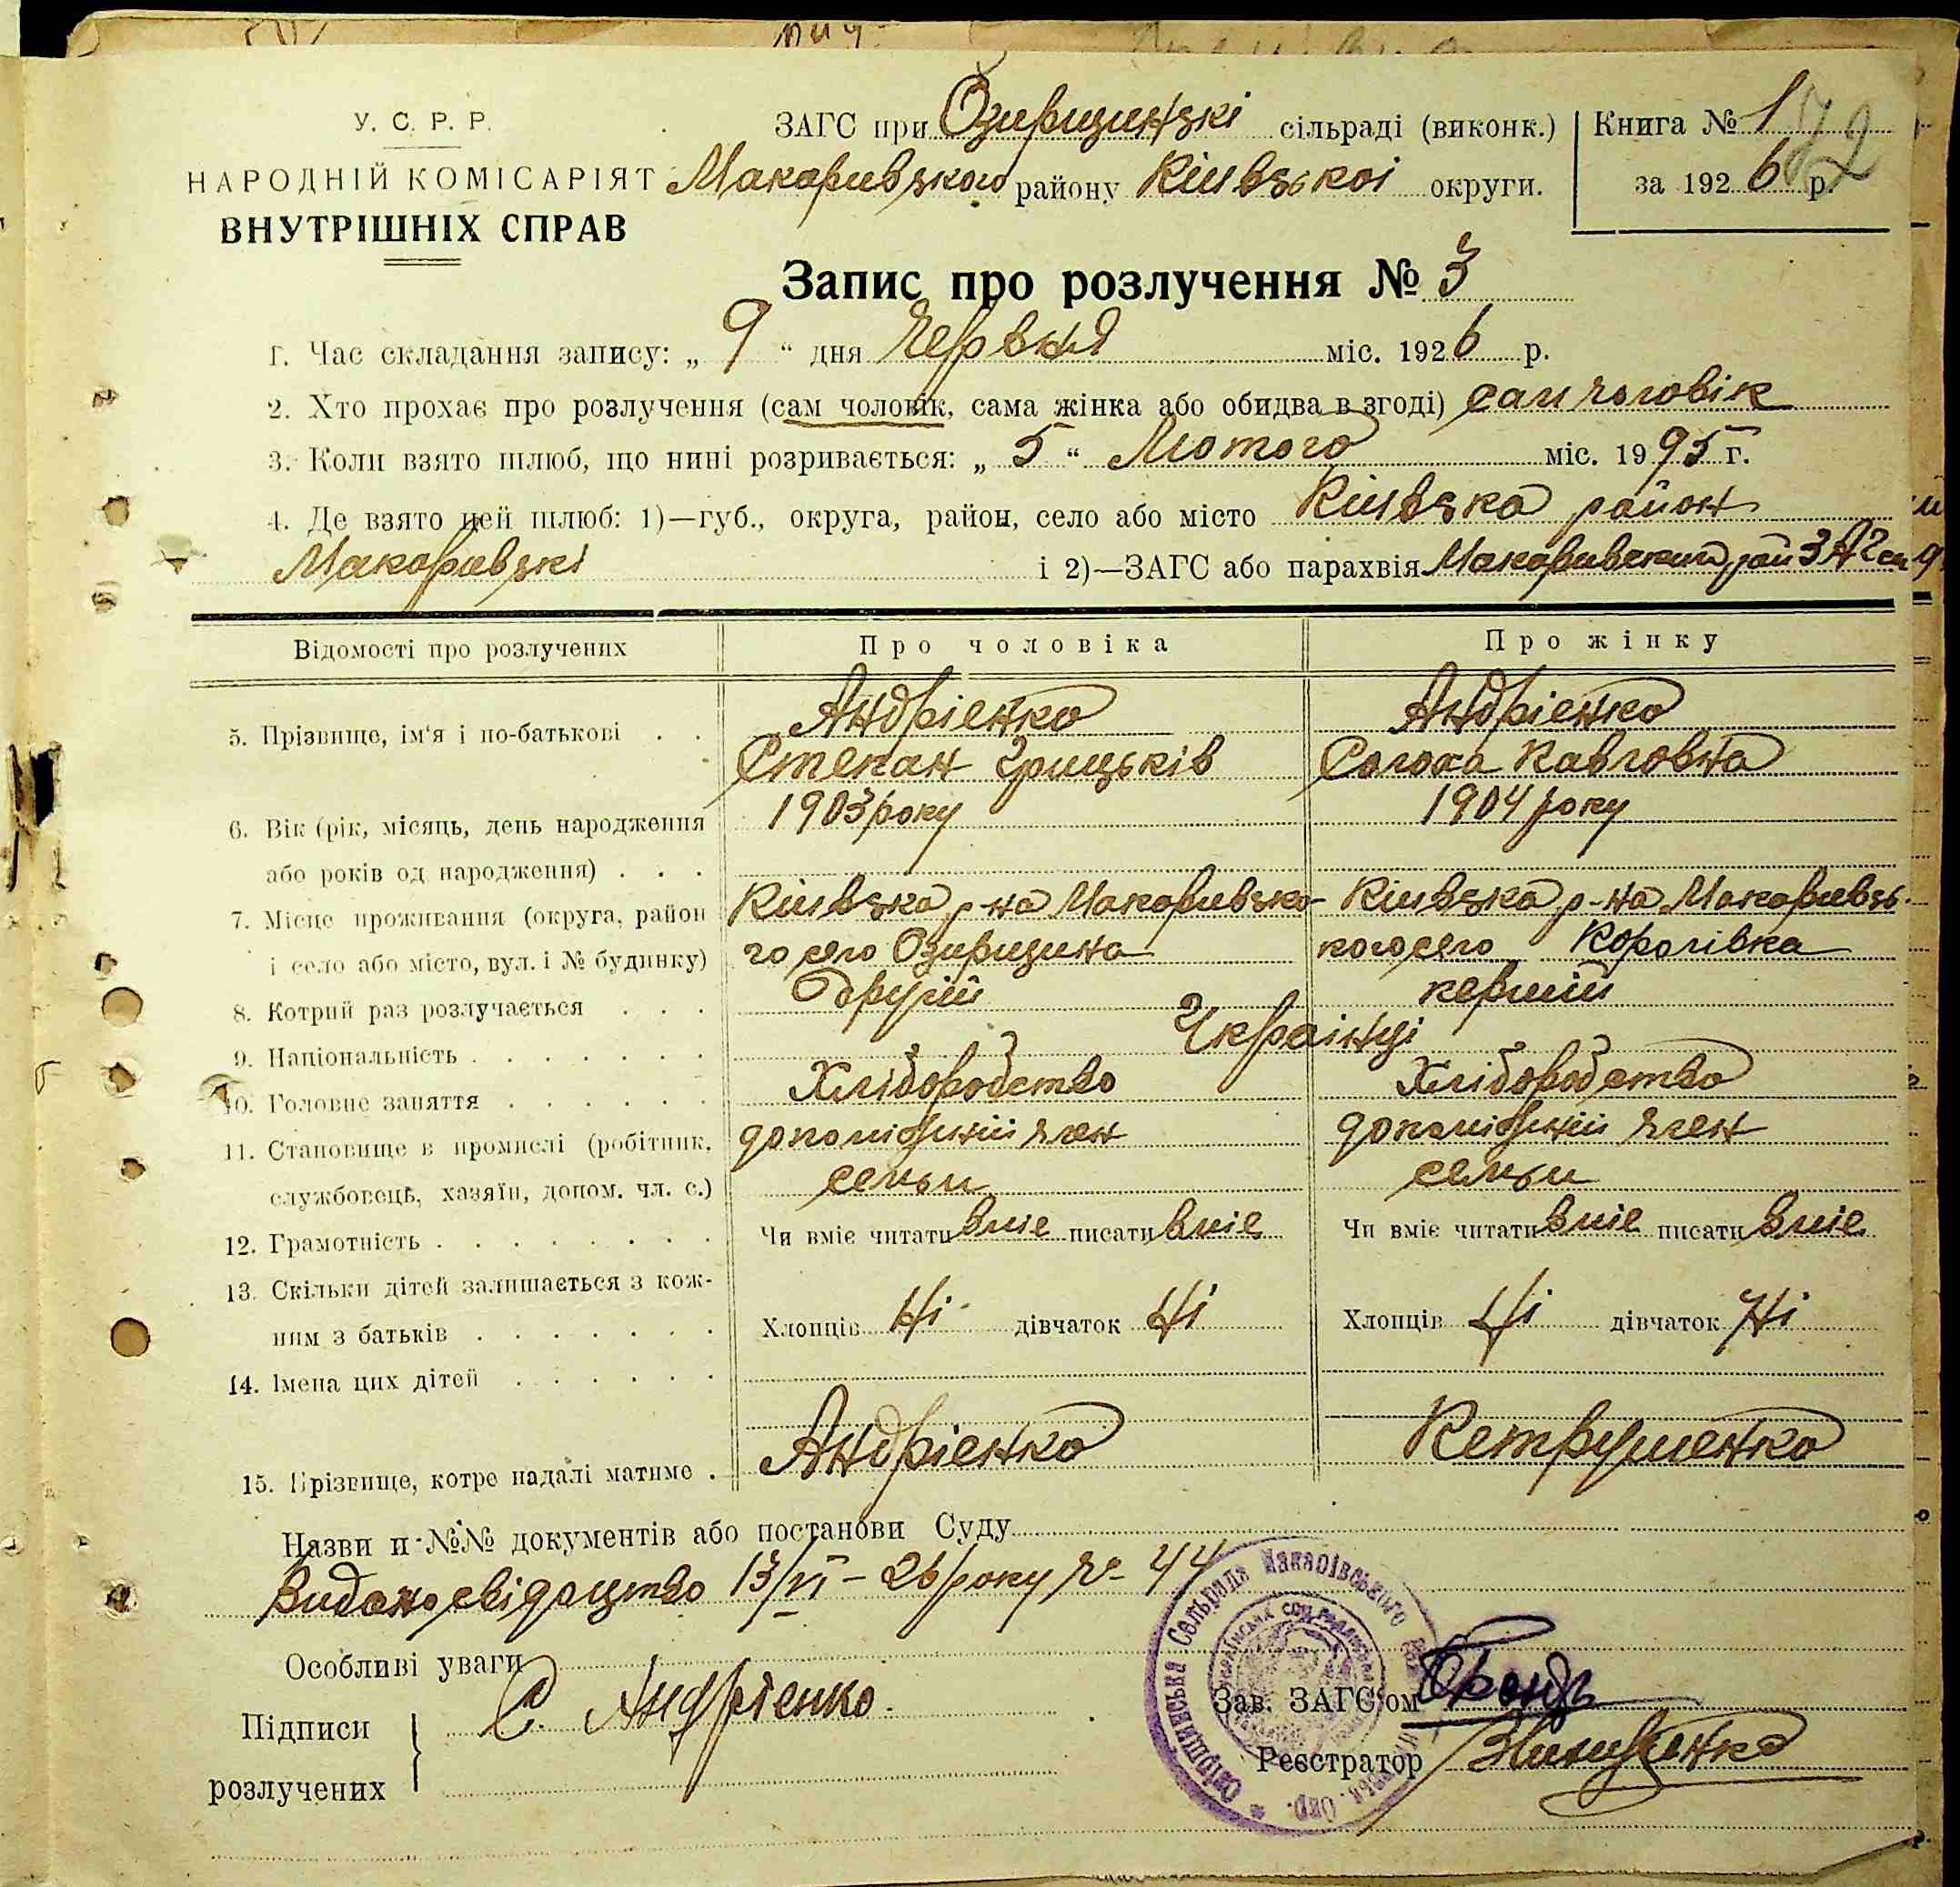 У. С. Р. Р.
НАРОДНІЙ КОМІСАРІЯТ
ВНУТРІШНІХ СПРАВ
ЗАГС при Озирщинські сільраді (виконк.)
Макаривського району Київської округи.
Книга № 1
72
за 1926 р.
Запис про розлучення № 3
1. Час складання запису: „ 9 “ дня Червня міс. 1926 р.
2. Хто прохає про розлучення (сам чоловік, сама жінка або обидва в згоді) сам чоловік
3. Коли взято шлюб, що нині розривається: „ 5 “ Лютого міс. 1995 г.
4. Де взято цей шлюб: 1)—губ., округа, район, село або місто Київська район
Макаривскі і 2)—ЗАГС або парахвія Макаривским рай ЗАГсм
Відомості про розлучених Про чоловіка Про жінку
5. Прізвище, ім‘я і по-батькові . . Андрієнко Андрієнко
Степан Грицьків Солоха Павловна
6. Вік (рік, місяць, день народження 1903 року 1904 року
або років од народження) . . .
7. Місце проживання (округа, район Київска р-на Макаривсько- Київска р-на Макаривсь-
і село або місто, вул. і № будинку) го село Озирщина кого село Королівка
8. Котрий раз розлучається . . . другій перший
9. Національність . . . . . . . Українці
10. Головне заняття . . . . . . Хліборобство Хліборобство
11. Становище в промислі (робітник, допоміжний член допоміжний член
службовець, хазяїн, допом. чл. с.) семьи семьи
12. Грамотність . . . . . . . . Чи вміє читати вміє писати вміє Чи вміє читати вміє писати вміє
13. Скільки дітей залишається з кож-
ним з батьків . . . . . . . Хлопців Ні дівчаток Ні Хлопців Ні дівчаток Ні
14. Імена цих дітей . . . . . .
15. Прізвище, котре надалі матиме . Андрієнко Петрушенко
Назви й №№ документів або постанови Суду
Видано свідоцтво 13/VI – 26 року № 44
Особливі уваги
Підписи
розлучених
С. Андрієнко.
Зав. ЗАГС‘ом
Реєстратор